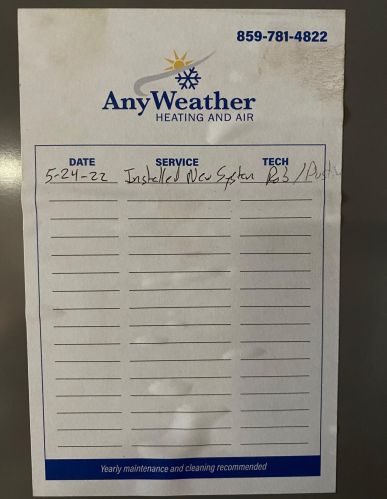 859-781-4822
AnyWeather
HEATING AND AIR
DATE SERVICE TECH
5-24-22 Installed New System Rob / Dustin
Yearly maintenance and cleaning recommended